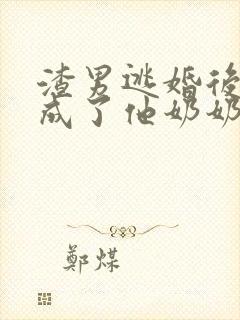 渣男逃婚後
成了他奶奶
鄭煤